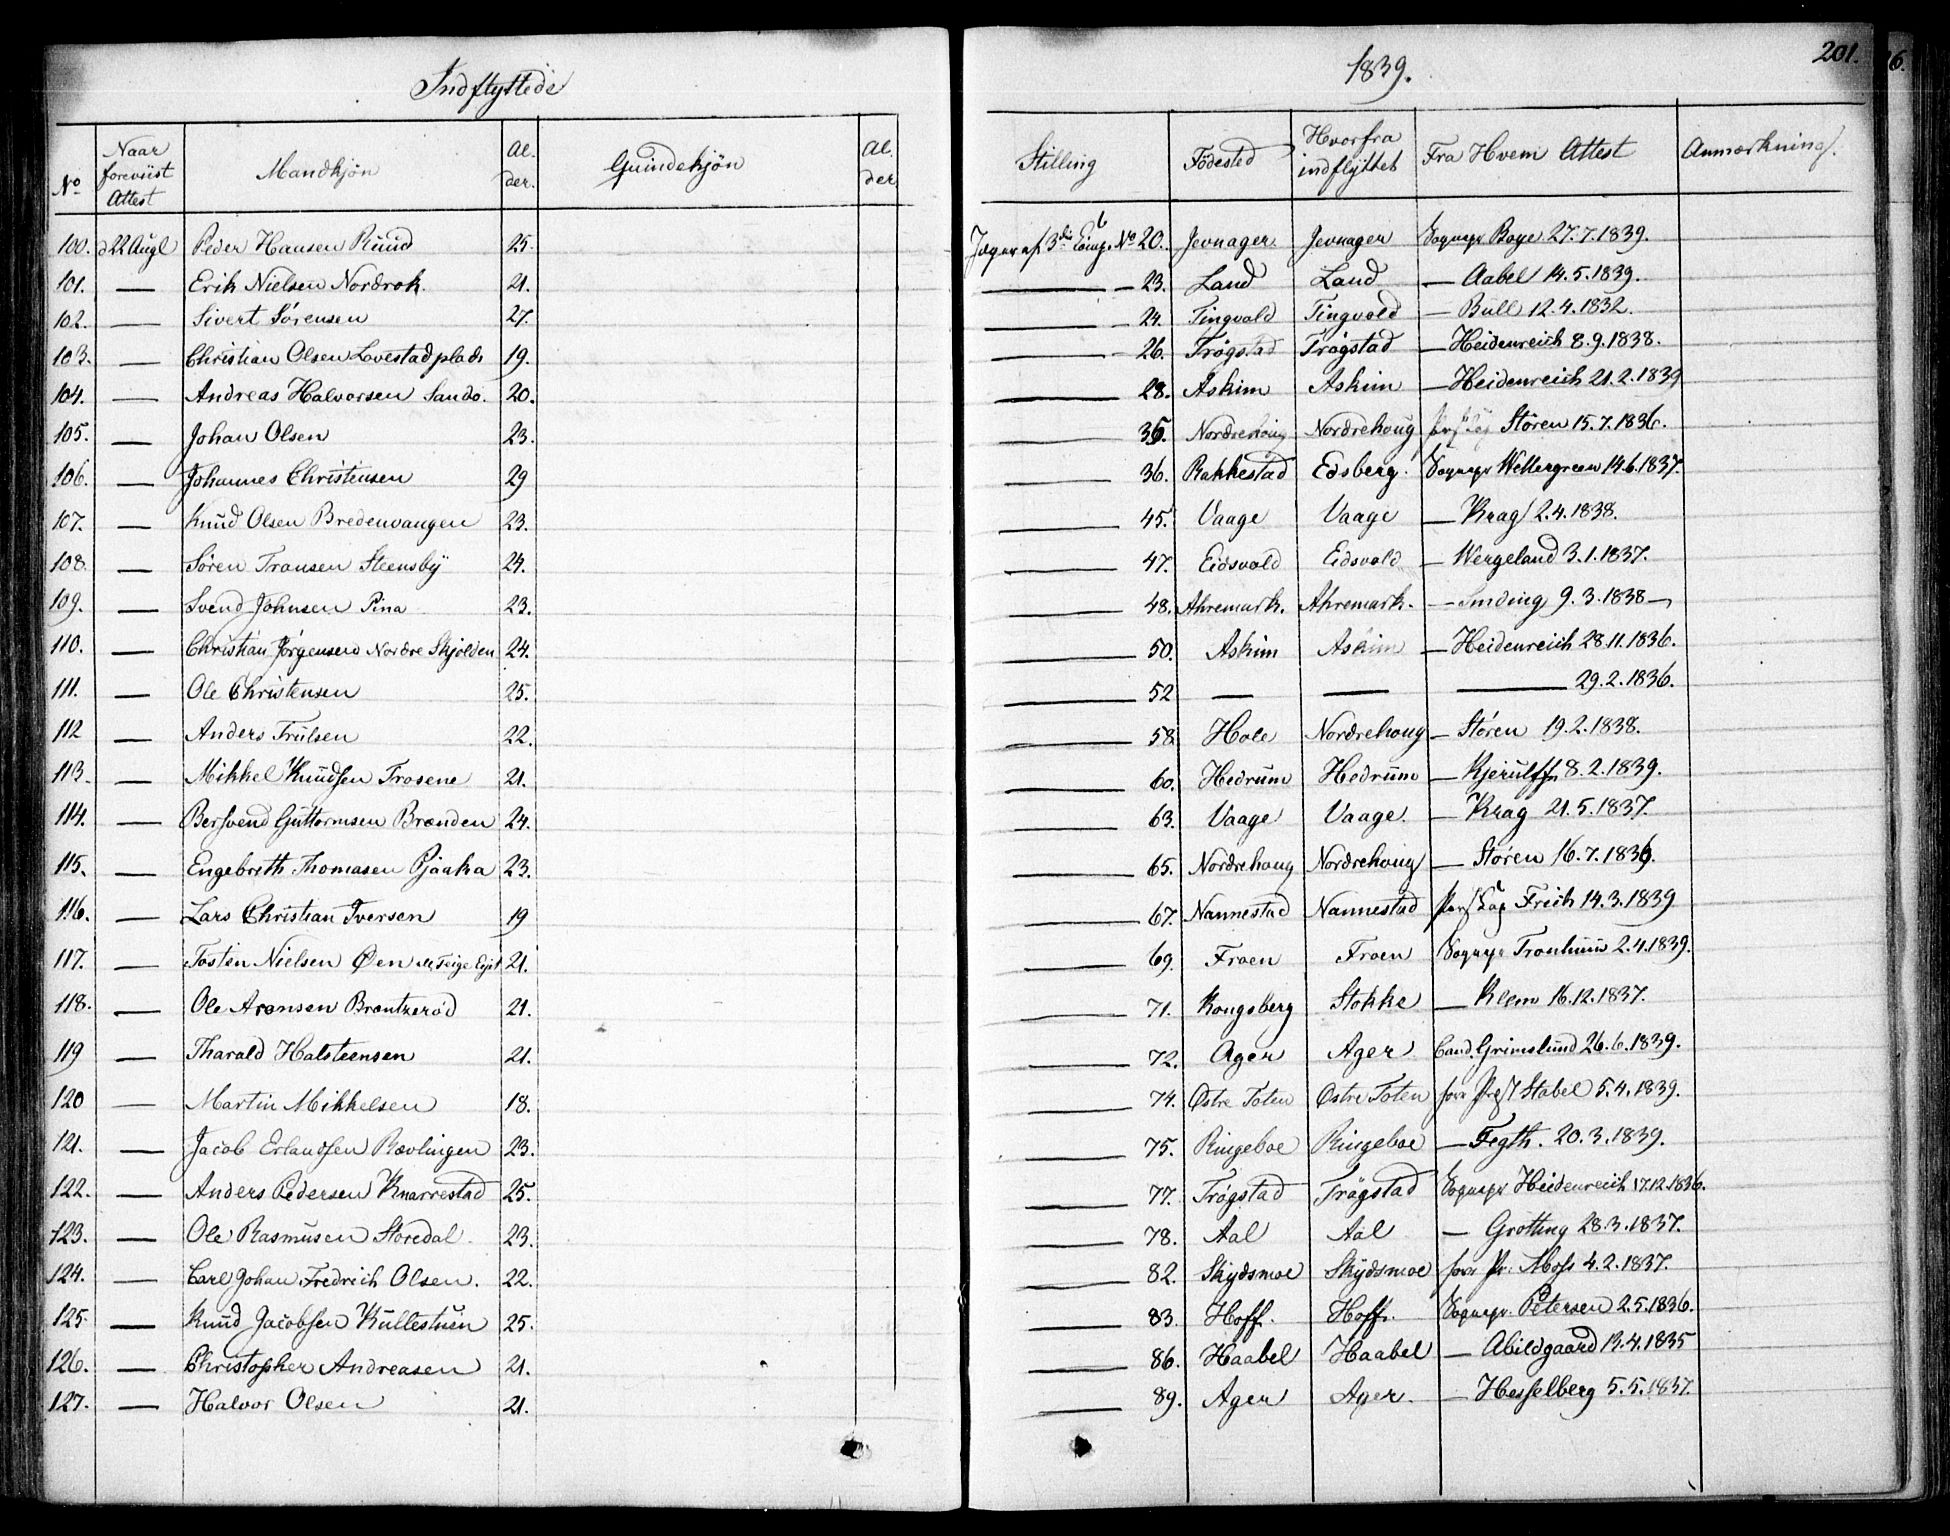 Indflyttede
1839.
201.
No Naar foreviist Attest Mandkjön Alder. Qvindekjön Alder Stilling Födested Hvorfra indflyttet Fra Hvem Attest Anmærkning.
100. d 22 Augt Peder Hansen Ruud 25. Jæger af 3die Comp. No 20. Jevnager Jevnager Sognepr Boye 27.7.1839.
101. — Erik Nielsen Nordrok 21. — 23. Land Land — Aabel 14.5.1839.
102. — Sivert Sörensen 27. — 24. Tingvold Tingvold — Bull 12.4.1832.
103. — Christian Olsen Lovestadplads 19. — 26. Trögstad Trögstad — Heidenreich 8.9.1838.
104. — Andreas Halvorsen Sando. 20. — 28. Askim Askim — Heidenreich 21.2.1839
105. — Johan Olsen 23. — 35. Nordrehoug Nordrehoug Stören 15.7.1836.
106. — Johannes Christensen 29 — 36. Rakkestad Edsberg. Sognepr Wettergreen 14.6.1837.
107. — Knud Olsen Bredenvangen 23. — 45. Vaage Vaage — Krag 2.4.1838.
108. — Sören Fransen Steensby 24. — 47. Eidsvold Eidsvold — Wergeland 3.1.1837.
109. — Svend Johnsen Pina 23. — 48. Ahremark. Ahremark. — Smding 9.3.1838 —
110. — Christian Jörgensen Nordre Skjolden 24. — 50. Askim Askim — Heidenreich 28.11.1836.
111. — Ole Christensen 25. — 52 — — — 29.2.1836.
112 — Anders Trulsen 22. — 58 Hole Nordrehoug — Stören 19.2.1838.
113. — Mikkel Knudsen Trosene 21. — 60. Hedrum Hedrum — Kjerulff 8.2.1839.
114. — Bersvend Guttormsen Brænden 24. — 63. Vaage Vaage. — Krag 21.5.1837.
115. — Engebreth Thomasen Pjaaka 23. — 65. Nordrehoug Nordrehoug — Stören 16.7.1836.
116. — Lars Christian Iversen 19 — 67. Nannestad Nannestad pers Cap Frich 14.3.1839
117. — Tosten Nielsen Öen 21. — 69. Froen Froen Sognepr 2.4.1839.
118. — Ole Arensen Brentzeröd 21. — 71. Kongsberg Stokke — Klem 16.12.1837.
119 — Tharald Halsteensen 21. — 72. Ager Ager Cand. Grimslund 26.6.1839.
120 — Martin Mikkelsen 18. — 74. Östre Toten Östre Toten forr Prest Stabel 5.4.1839.
121. — Jacob Erlandsen Rævlingen 23. — 75. Ringeboe Ringeboe — Fegth. 20.3.1839.
122. — Anders Pedersen Knarrestad 25. — 77. Trögstad Trögstad Sognepr Heidenreich 17.12.1836.
123. — Ole Rasmusen Storedal 23. — 78. Aal Aal — Grotting 28.3.1837.
124. — Carl Johan Fredrich Olsen. 22. — 82. Skydsmoe Skydsmoe forr Pr. Moss 4.2.1837.
125. — Knud Jacobsen Kullestuen 25. — 83. Hoff. Hoff. Sognepr. Petersen 2.5.1836.
126. — Christopher Andreasen 21. — 86. Haabel Haabel — Abildgaard 13.4.1835
127. — Halvor Olsen 21. — 89. Ager Ager. — Hesselberg 5.5.1837.